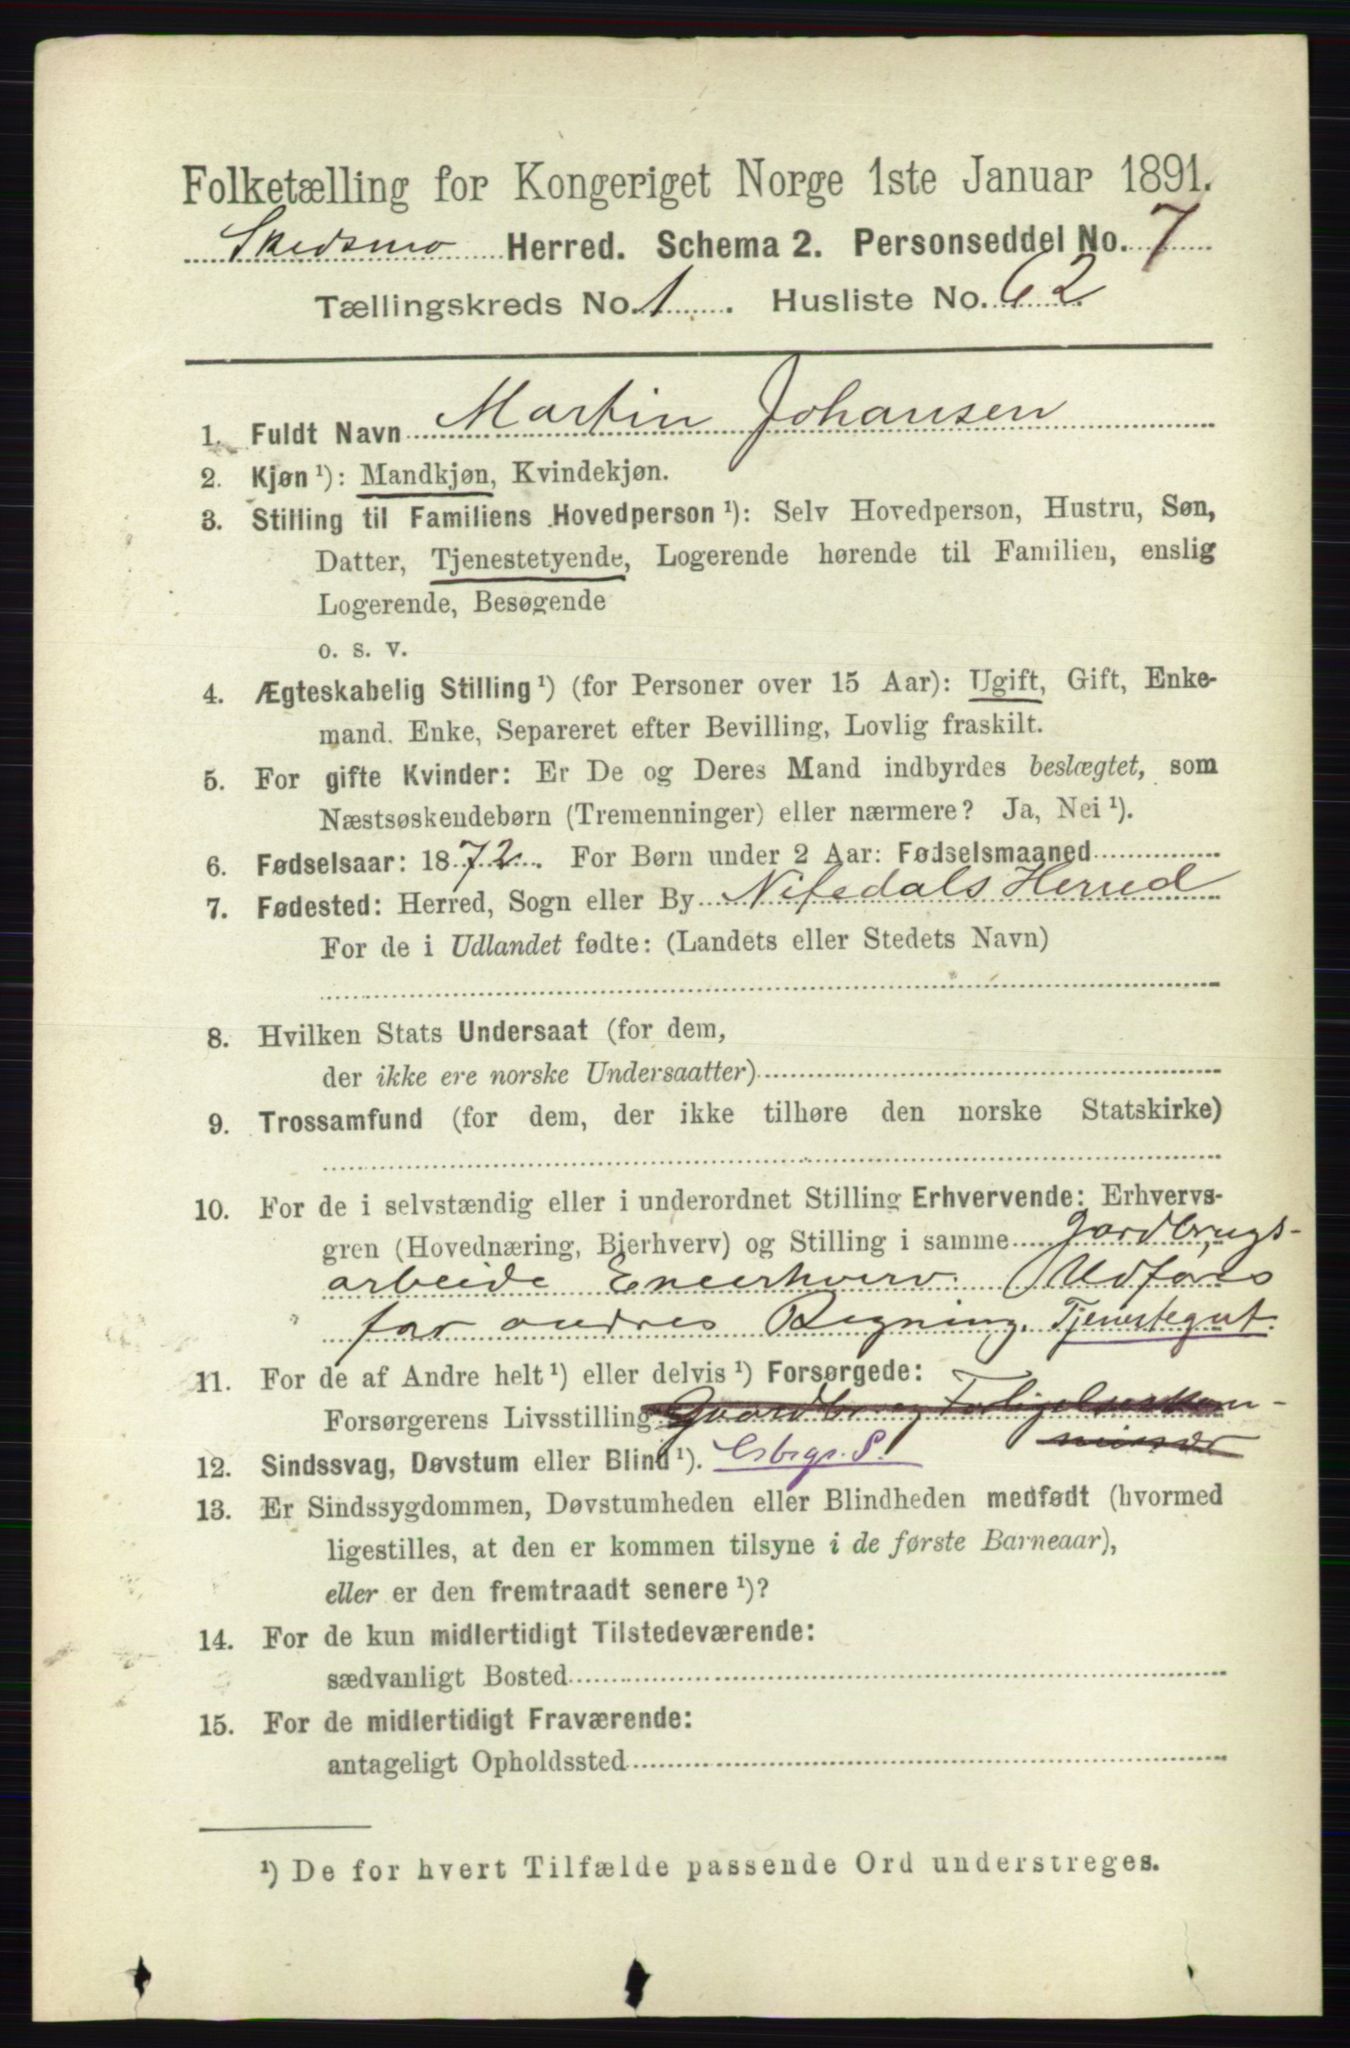 Folketælling for Kongeriget Norge 1ste Januar 1891.
Skedsmo Herred. Schema 2. Personseddel No. 7
Tællingskreds No. 1. Husliste No. 62
1. Fuldt Navn Martin Johansen
2. Kjøn ¹): Mandkjøn, Kvindekjøn.
3. Stilling til Familiens Hovedperson ¹): Selv Hovedperson, Hustru, Søn,
Datter, Tjenestetyende, Logerende hørende til Familien, enslig
Logerende, Besøgende
o. s. v.
4. Ægteskabelig Stilling ¹) (for Personer over 15 Aar): Ugift, Gift, Enke-
mand. Enke, Separeret efter Bevilling, Lovlig fraskilt.
5. For gifte Kvinder: Er De og Deres Mand indbyrdes beslægtet, som
Næstsøskendebørn (Tremenninger) eller nærmere? Ja, Nei ¹).
6. Fødselsaar: 1872. For Børn under 2 Aar: Fødselsmaaned
7. Fødested: Herred, Sogn eller By Nitedals Herred
For de i Udlandet fødte: (Landets eller Stedets Navn)
8. Hvilken Stats Undersaat (for dem,
der ikke ere norske Undersaatter)
9. Trossamfund (for dem, der ikke tilhøre den norske Statskirke)
10. For de i selvstændig eller i underordnet Stilling Erhvervende: Erhvervs-
gren (Hovednæring, Bierhverv) og Stilling i samme Jordbrugs-
arbeide Eneerhverv. Udføres
for andres Regning. Tjenestegut.
11. For de af Andre helt ¹) eller delvis ¹) Forsørgede:
Forsørgerens Livsstilling Gaardbr. og Forligelseskom-
missær
12. Sindssvag, Døvstum eller Blind ¹).
13. Er Sindssygdommen, Døvstumheden eller Blindheden medfødt (hvormed
ligestilles, at den er kommen tilsyne i de første Barneaar),
eller er den fremtraadt senere ¹)?
14. For de kun midlertidigt Tilstedeværende:
sædvanligt Bosted
15. For de midlertidigt Fraværende:
antageligt Opholdssted
¹) De for hvert Tilfælde passende Ord understreges.